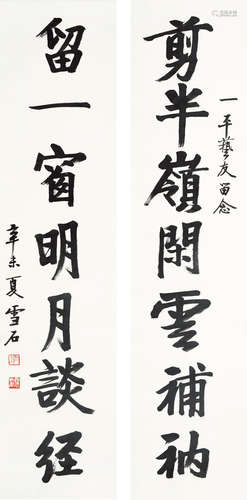 一平藝友留念
剪半嶺閑雲補衲
留一窗明月談经
辛未夏雪石